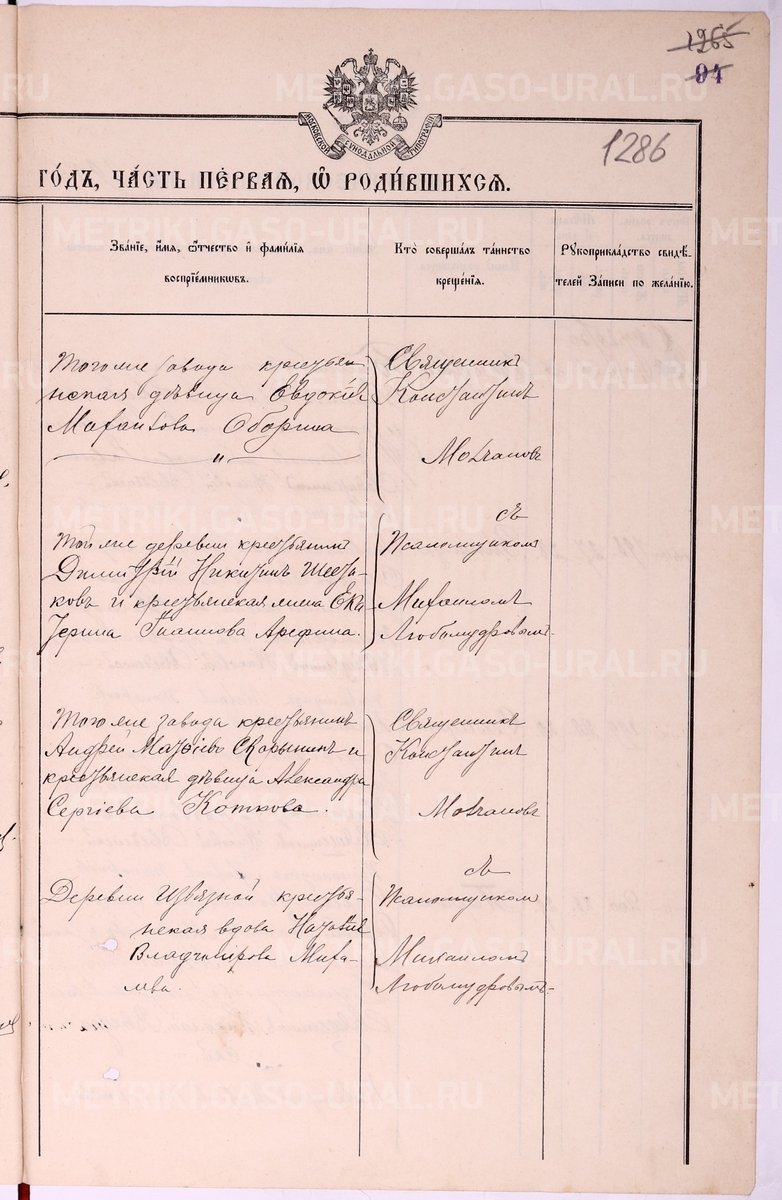 1265
94
1286
МОСКОВСКОЙ СѴНОДАЛЬНОЙ ТИПОГРАФІИ
ГО́ДЪ, ЧА́СТЬ ПЕ́РВАЯ, Ѽ РОДИ́ВШИХСЯ.
Зва́нїе, и́мя, ѻ́тчество и҆ фами́лїя
воспрїе́мниковъ.
Кто̀ совершалъ та́инство
креще́нїя.
Рукоприкла́дство свидѣ́-
телей Записи по жела́нїю.
Тогоже завода крестьян
нская дѣвица Евдокія
Оборина
Священникъ
Константинъ
Молчановъ
Тойже деревни крестьянинъ
Димитрій Никитинъ Шеста-
ковъ и крестьянская жена Ека
терина Иванова Арефина.
съ
Псаломщикомъ
Михаиломъ
Любомудровымъ.
Тогоже завода крестьянинъ
Андрей Матвіевъ Скорынинъ и
крестьянская дѣвица Александра
Сергіева Коткова.
Священникъ
Константинъ
Молчановъ
съ
Деревни Извязной крестья-
нская вдова Наталія
Владимірова Миха-
лева.
Псаломщикомъ
Михаиломъ
Любомудровымъ.
METRIKI.GASO-URAL.RU